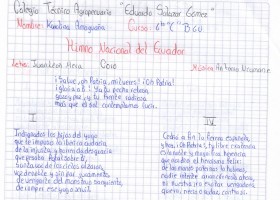 Colegio Técnico Agropecuario "Eduardo Salazar Gómez"
Nombre: Karolina Aranguña Curso: 6to "C" BGU
Himno Nacional del Ecuador
Letra: Juan León Mera Coro Música: Antonio Neumane
¡Salve, oh Patria, mil veces! ¡Oh Patria!
¡gloria a ti! Ya tu pecho rebosa
gozo y paz, y tu frente radiosa
más que el sol contemplamos lucir.
I
Indignados tus hijos del yugo
que te impuso la ibérica audacia,
de la injusta y horrenda desgracia
que pesaba fatal sobre ti,
santa voz a los cielos alzaron,
voz de noble y sin par juramento,
de vengarte del monstruo sangriento,
de romper ese yugo servil.
IV
Cedió al fin la fiera española,
y hoy, oh Patria, tu libre existencia
es la noble y magnífica herencia
que nos dio el heroísmo feliz;
de las manos paternas la hubimos,
nadie intente arrancárnosla ahora,
ni nuestra ira excitar vengadora
quiera, necio o audaz, contra sí.